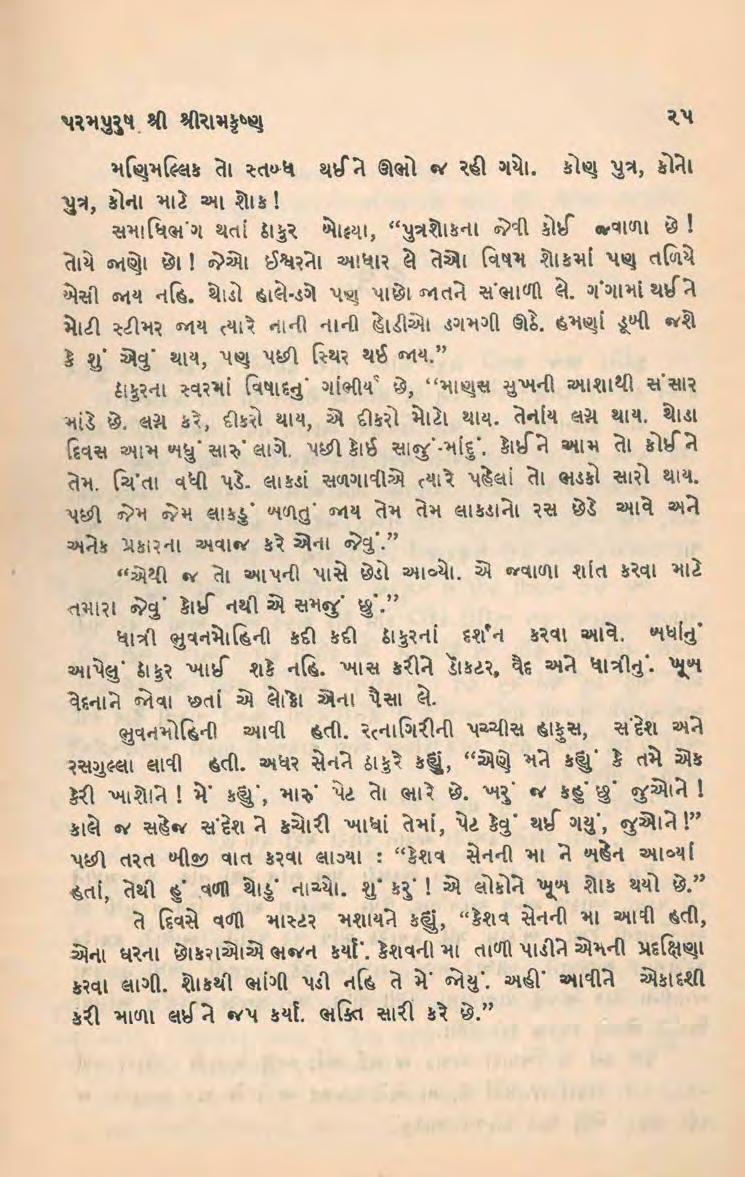 પરમપુરુષ શ્રી શ્રીરામકૃષ્ણ ૨૫
મણિમલ્લિક તો સ્તબ્ધ થઈને ઊભો જ રહી ગયો. કોણ પુત્ર, કોનો
પુત્ર, કોના માટે આ શોક!
સમાધિભંગ થતાં ઠાકુર બોલ્યા, “પુત્રશોકના જેવી કોઈ જ્વાળા છે!
તોયે જાણો છો! જેઓ ઈશ્વરનો આધાર લે તેઓ વિષમ શોકમાં પણ તળિયે
બેસી જાય નહિ. થોડો હાલે-ડગે પણ પાછો જાતને સંભાળી લે. ગંગામાં થઈને
મોટી સ્ટીમર જાય ત્યારે નાની નાની હોડીઓ ડગમગી ઊઠે. હમણાં ડૂબી જશે
કે શું એવું થાય, પણ પછી સ્થિર થઈ જાય.”
ઠાકુરના સ્વરમાં વિષાદનું ગાંભીર્ય છે, “માણસ સુખની આશાથી સંસાર
માંડે છે. લગ્ન કરે, દીકરો થાય, એ દીકરો મોટો થાય. તેનાંય લગ્ન થાય. થોડા
દિવસ આમ બધું સારું લાગે. પછી કોઈ સાજું-માંદું. કોઈને આમ તો કોઈને
તેમ. ચિંતા વધી પડે. લાકડાં સળગાવીએ ત્યારે પહેલાં તો ભડકો સારો થાય.
પછી જેમ જેમ લાકડું બળતું જાય તેમ તેમ લાકડાનો રસ છેડે આવે અને
અનેક પ્રકારના અવાજ કરે એના જેવું.”
“એથી જ તો આપની પાસે છેડો આવ્યો. એ જ્વાળા શાંત કરવા માટે
તમારા જેવું કોઈ નથી એ સમજું છું.”
ધાત્રી ભુવનમોહિની કદી કદી ઠાકુરનાં દર્શન કરવા આવે. બધાંનું
આપેલું ઠાકુર ખાઈ શકે નહિ. ખાસ કરીને ડૉકટર, વૈદ અને ધાત્રીનું. ખૂબ
વેદનાને જોવા છતાં એ લોકો એના પૈસા લે.
ભુવનમોહિની આવી હતી. રત્નાગિરીની પચ્ચીસ હાફુસ, સંદેશ અને
રસગુલ્લા લાવી હતી. અધર સેનને ઠાકુરે કહ્યું, “એણે મને કહ્યું કે તમે એક
કેરી ખાશોને! મેં કહ્યું, મારું પેટ તો ભારે છે. ખરું જ કહું છું જુઓને!
કાલે જ સહેજ સંદેશ ને કચોરી ખાધાં તેમાં, પેટ કેવું થઈ ગયું, જુઓને!”
પછી તરત બીજી વાત કરવા લાગ્યા : “કેશવ સેનની મા ને બહેન આવ્યાં
હતાં, તેથી હું વળી થોડું નાચ્યો. શું કરું! એ લોકોને ખૂબ શોક થયો છે.”
તે દિવસે વળી માસ્ટર મશાયને કહ્યું, “કેશવ સેનની મા આવી હતી,
એના ઘરના છોકરાઓએ ભજન કર્યાં. કેશવની મા તાળી પાડીને એમની પ્રદક્ષિણા
કરવા લાગી. શોકથી ભાંગી પડી નહિ તે મેં જોયું. અહીં આવીને એકાદશી
કરી માળા લઈને જપ કર્યા. ભક્તિ સારી કરે છે.”